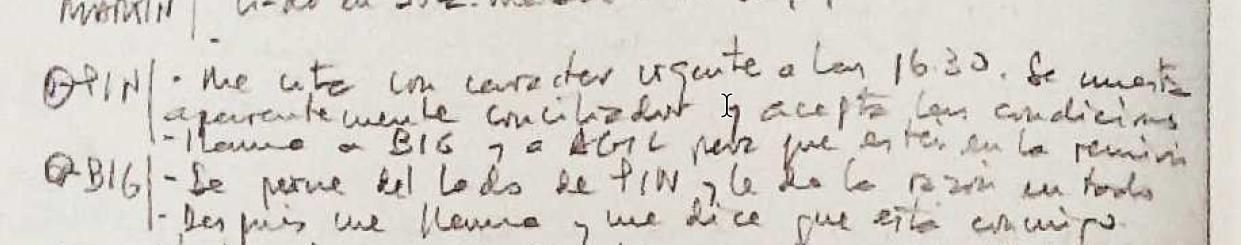 MARTIN|
① PIN | · Me cita con caracter urgente a las 16.30. Se muestra
aparentemente conciliador y acepta las condiciones
- Llama a BIG y a AGIL para que estén en la reunión
② BIG | - Se pone del lado de PIN y le da la razón en todo
- Después me llama y me dice que está conmigo.